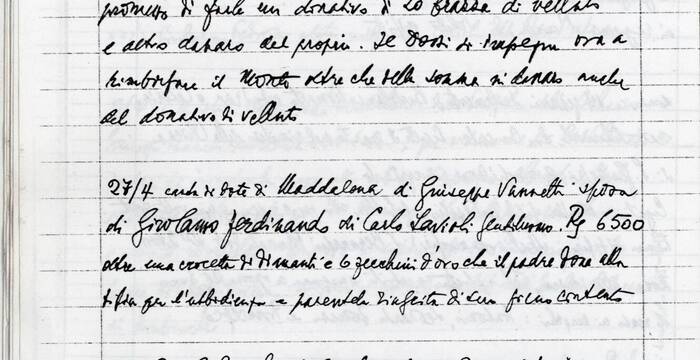 promesso di farle un donativo di 20 braccia di velluto
e altro danaro del proprio. Il Dossi si impegna ora a
rimborsare il Monte oltre che della somma di denaro anche
del donativo di velluto
27/4 carta di dote di Maddalena di Giuseppe Vannetti sposa
di Girolamo Ferdinando di Carlo Lavioli Gentiluomo. Rg 6500
oltre una crocetta di diamanti e 60 zecchini d'oro che il padre dona alla
figlia per l'ubbidienza e di suo pieno contento